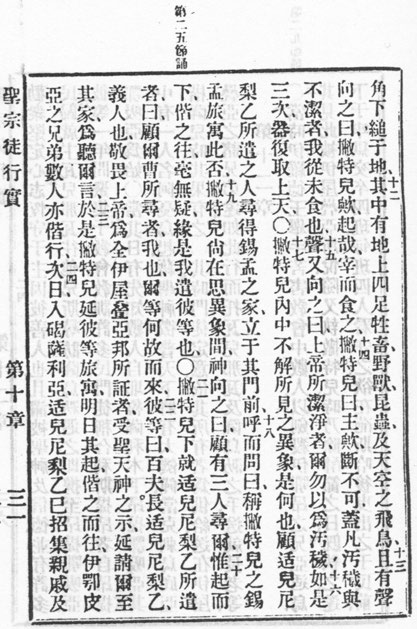 第二五節誦
角下縋于地其中有地上四足牲畜野獸昆蟲及天空之飛鳥且有聲
十二
十三
向之曰撇特兒歟起哉宰而食之撇特兒曰主歟斷不可蓋凡污穢與
十四
不潔者我從未食也聲又向之曰上帝所潔淨者爾勿以爲污穢如是
十五
十六
三次器復取上天〇撇特兒內中不解所見之異象是何也顧适兒尼
十七
梨乙所遣之人尋得錫孟之家立于其門前呼而問曰稱撇特兒之錫
十八
孟旅寓此否撇特兒尚在思異象間神向之曰顧有三人尋爾惟起而
十九
二十
下偕之往毫無疑緣是我遣彼等也〇撇特兒下就适兒尼梨乙所遣
二一
者曰顧爾曹所尋者我也爾等何故而來彼等曰百夫長适兒尼梨乙
二二
義人也敬畏上帝爲全伊屋疊亞邦所証者受聖天神之示延請爾至
其家爲聽爾言於是撇特兒延彼等旅寓明日其起偕之而往伊鄂皮
二三
亞之兄弟數人亦偕行次日入碣薩利亞适兒尼梨乙已招集親戚及
二四
聖宗徒行實
第十章
三一